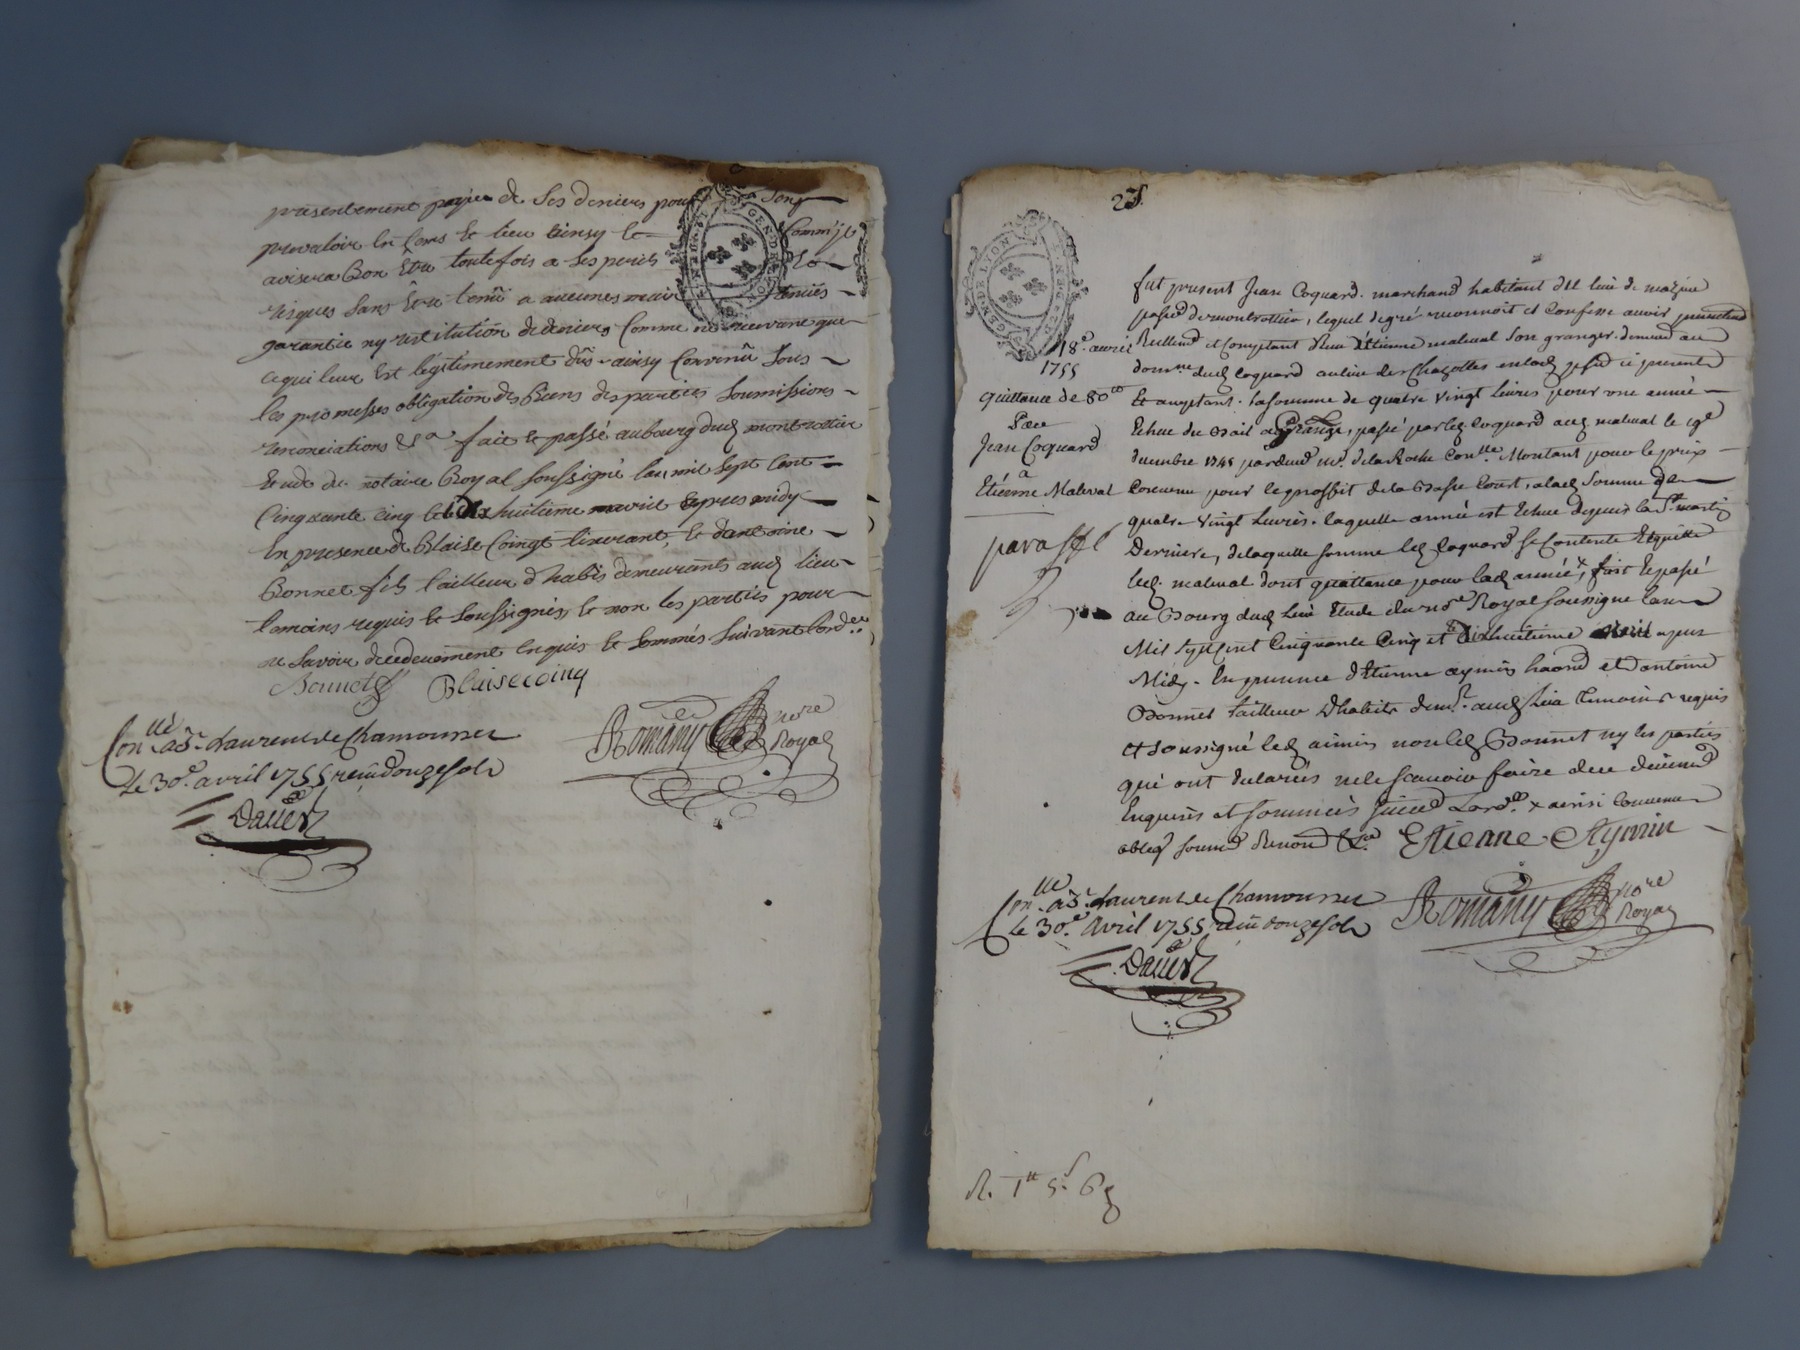 presentement payée de ses deniers pour son
prevaloir en lieu ainsy Comm'il
avisera bon être toutefois a ses perils
risques sans être tenüe a aucunes
garantie ny restitution de deniers Comme ne recevant que
ce qui leur est légitimement dû ainsy Convenû sous
les promesses obligation des Biens des parties Soumissions
renonciations &a fait et passé au bourg dud montrottier
Etude du notaire Royal soussigné l'an mil sept Cent
Cinquante cinq et le dix huitième avril apres midy
En presence de Blaise Coingt et d'antoine
Bonnet fils tailleur d'habis demeurants aud lieu
temoins requis et soussignés, et non les parties pour
ne savoir de ce deuement enquis et sommés suivant l'ord.ce
Bonnet Blaise coing
Con.llé a St. Laurent de Chamousset
le 30.e avril 1755 reçû douze sols
Romany no.re Royal
Daver
23.
GEN. DE LYON
fut present Jean Coquard marchand habitant du lieu de
parroisse de montrottier, lequel de gré reconnoit et Confesse avoir presentement
Reellement et Comptant Reçu d'Etienne malaval son granger demeurant au
domaine dud Coquard au lieu des Chazottes en lad psse ci present
Et acceptant la somme de quatre vingt livres pour une année
Echue du Bail a Grange, passé par led Coquard aud malaval le 19e
decembre 1748 pardevant me. delaRoche Con.llé Montant pour le prix
Convenu pour le proffit de la Basse Court, a lad somme de
quatre vingt Livres. laquelle année est Echue depuis la St. martin
Derniere, de laquelle somme led Coquard se Contente Et quitte
led. malaval dont quittance pour lad année, × fait Et passé
au Bourg dud lieu Etude du no.re Royal soussigné l'an
Mil sept Cent Cinquante Cinq et le Dixhuitième avril apres
Midy. En presence d'Etienne aymin et d'antoine
Bonnet tailleur D'habits dem.t aud lieu temoins requis
et soussigné led aimin non led Bonnet ny les parties
qui ont declarées ne le scavoir faire de ce düement
Enquises et sommées suivant L'ord.ce × ainsi Convenu
obligon soumon Renon &a. Etienne Aymin
18.e avril
1755
quittance de 80 ll
Par
Jean Coquard
a
Etienne Malaval
par a
Con.llé a St. Laurent de Chamousset
le 30.e Avril 1755 reçû douze sols
Romany no.re Royal
Daver
R. 1 ll 5 s. 6 d